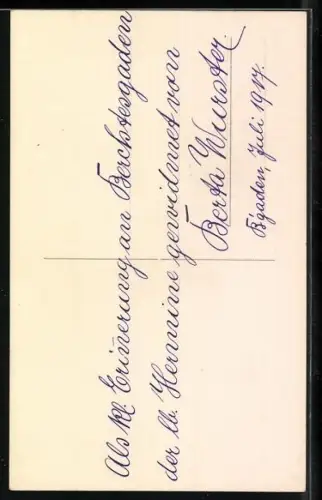 Als kl. Erinnerung an Berchtesgaden
der lb. Hermine gewidmet von
Berta Wurster.
B'gaden, Juli 1917.